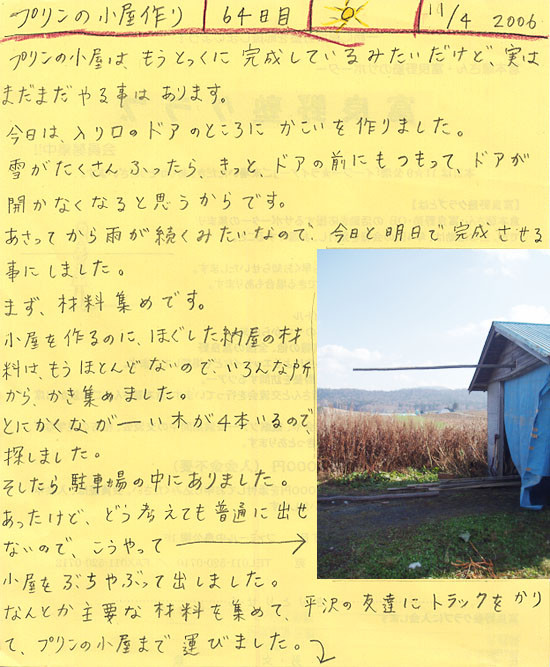 プリンの小屋作り 64日目 11/4 2006
プリンの小屋は、もうとっくに 完成しているみたいだけど、実は
まだまだ やる事は あります。
今日は、入り口の ドアの ところに かこい を 作りました。
雪が たくさん ふったら、きっと、ドアの 前にも つもって、ドアが
開かなくなると 思うからです。
あさってから 雨が 続くみたいなので、今日と明日で 完成させる
事にしました。
まず、材料 集めです。
小屋を 作るのに、ほぐした 納屋の 材
料は もう ほとんど ないので、いろんな 所
から、かき 集めました。
とにかく なが――い 木が 4本いるので、
探しました。
そしたら 駐車場の中に ありました。
あったけど、どう 考えても 普通に 出せ
ないので、こうやって
小屋を ぶちゃぶって 出しました。
なんとか 主要な 材料を 集めて、平沢の 友達に トラックを かり
て、プリンの小屋まで 運びました。